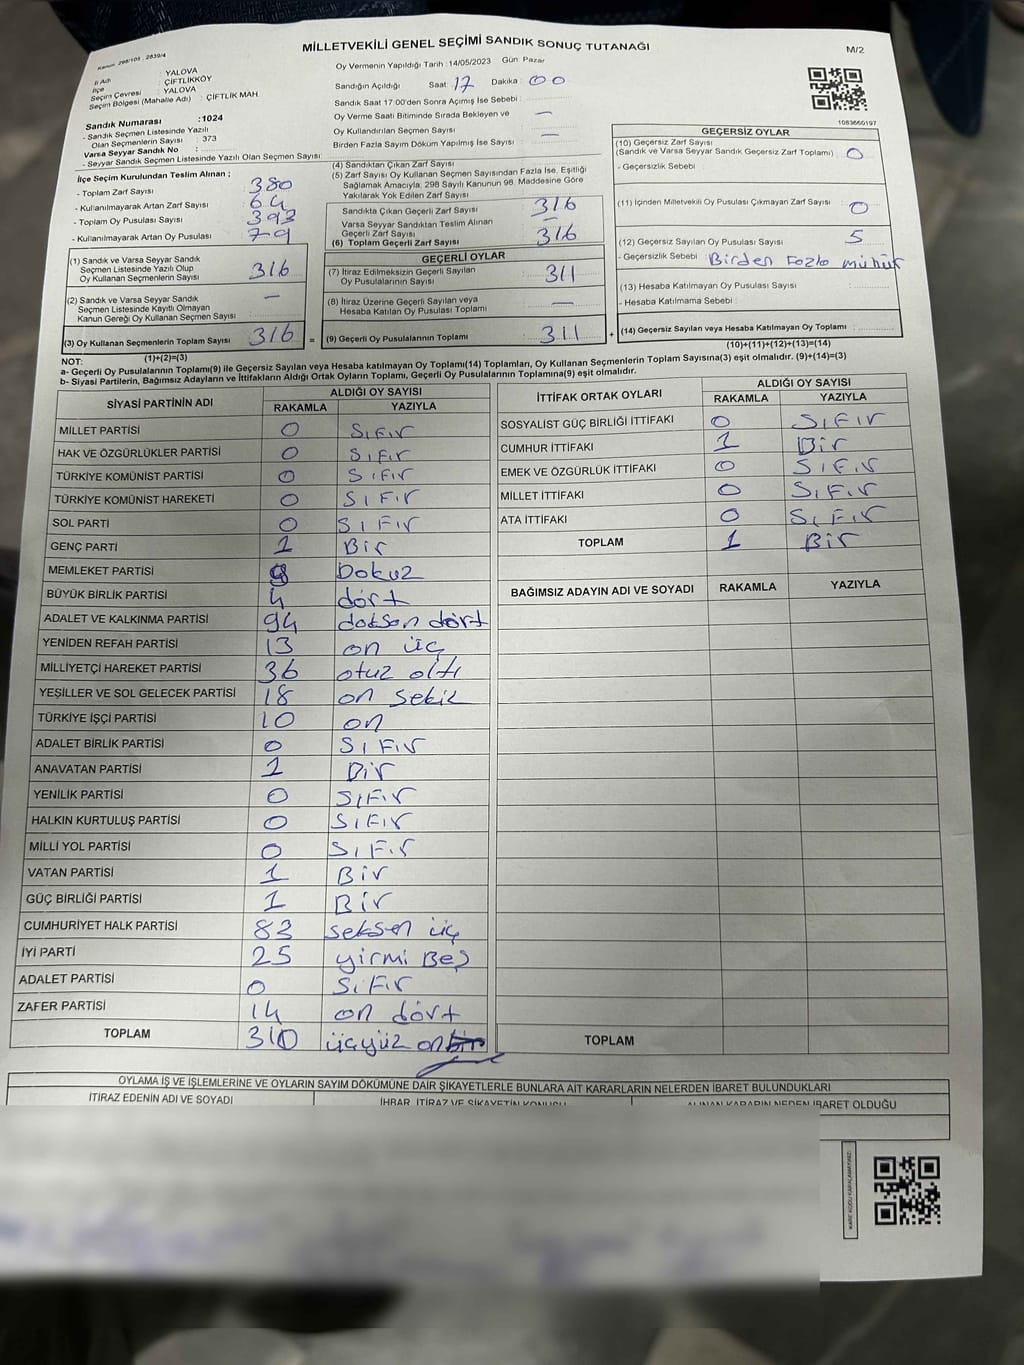 Kanun: 298/105 , 2839/4
MİLLETVEKİLİ GENEL SEÇİMİ SANDIK SONUÇ TUTANAĞI
M/2
İl Adı : YALOVA
İlçe : ÇİFTLİKKÖY
Seçim Çevresi : YALOVA
Seçim Bölgesi (Mahalle Adı) : ÇİFTLİK MAH.
Oy Vermenin Yapıldığı Tarih : 14/05/2023 Gün: Pazar
Sandığın Açıldığı Saat: 17 Dakika : 00
Sandık Saat 17.00'den Sonra Açımış İse Sebebi :
Oy Verme Saati Bitiminde Sırada Bekleyen ve
Oy Kullandırılan Seçmen Sayısı —
Birden Fazla Sayım Döküm Yapılmış İse Sayısı : —
1083660197
Sandık Numarası :1024
- Sandık Seçmen Listesinde Yazılı
Olan Seçmenlerin Sayısı : 373
Varsa Seyyar Sandık No :
- Seyyar Sandık Seçmen Listesinde Yazılı Olan Seçmen Sayısı:
İlçe Seçim Kurulundan Teslim Alınan ;
- Toplam Zarf Sayısı 380
- Kullanılmayarak Artan Zarf Sayısı : 64
- Toplam Oy Pusulası Sayısı : 393
- Kullanılmayarak Artan Oy Pusulası : 79
(1) Sandık ve Varsa Seyyar Sandık
Seçmen Listesinde Yazılı Olup
Oy Kullanan Seçmenlerin Sayısı : 316
(2) Sandık ve Varsa Seyyar Sandık
Seçmen Listesinde Kayıtlı Olmayan
Kanun Gereği Oy Kullanan Seçmen Sayısı : —
(3) Oy Kullanan Seçmenlerin Toplam Sayısı 316
(1)+(2)=(3)
(4) Sandıktan Çıkan Zarf Sayısı
(5) Zarf Sayısı Oy Kullanan Seçmen Sayısından Fazla İse, Eşitliği
Sağlamak Amacıyla, 298 Sayılı Kanunun 98. Maddesine Göre
Yakılarak Yok Edilen Zarf Sayısı
Sandıkta Çıkan Geçerli Zarf Sayısı : 316
Varsa Seyyar Sandıktan Teslim Alınan
Geçerli Zarf Sayısı —
(6) Toplam Geçerli Zarf Sayısı : 316
GEÇERLİ OYLAR
(7) İtiraz Edilmeksizin Geçerli Sayılan
Oy Pusulalarının Sayısı : 311
(8) İtiraz Üzerine Geçerli Sayılan veya
Hesaba Katılan Oy Pusulası Toplamı —
= (9) Geçerli Oy Pusulalarının Toplamı : 311 +
GEÇERSİZ OYLAR
(10) Geçersiz Zarf Sayısı
(Sandık ve Varsa Seyyar Sandık Geçersiz Zarf Toplamı) : 0
- Geçersizlik Sebebi :
(11) İçinden Milletvekili Oy Pusulası Çıkmayan Zarf Sayısı : 0
(12) Geçersiz Sayılan Oy Pusulası Sayısı : 5
- Geçersizlik Sebebi : Birden Fazla mühür
(13) Hesaba Katılmayan Oy Pusulası Sayısı :
- Hesaba Katılmama Sebebi :
(14) Geçersiz Sayılan veya Hesaba Katılmayan Oy Toplamı :
(10)+(11)+(12)+(13)=(14)
NOT:
a- Geçerli Oy Pusulalarının Toplamı(9) ile Geçersiz Sayılan veya Hesaba katılmayan Oy Toplamı(14) Toplamları, Oy Kullanan Seçmenlerin Toplam Sayısına(3) eşit olmalıdır. (9)+(14)=(3)
b- Siyasi Partilerin, Bağımsız Adayların ve İttifakların Aldığı Ortak Oyların Toplamı, Geçerli Oy Pusulalarının Toplamına(9) eşit olmalıdır.
SİYASİ PARTİNİN ADI ALDIĞI OY SAYISI
RAKAMLA YAZIYLA
MİLLET PARTİSİ 0 SıFır
HAK VE ÖZGÜRLÜKLER PARTİSİ 0 SıFır
TÜRKİYE KOMÜNİST PARTİSİ 0 SıFır
TÜRKİYE KOMÜNİST HAREKETİ 0 SıFır
SOL PARTİ 0 SıFır
GENÇ PARTİ 1 Bir
MEMLEKET PARTİSİ 9 Dokuz
BÜYÜK BİRLİK PARTİSİ 4 dört
ADALET VE KALKINMA PARTİSİ 94 doksan dört
YENİDEN REFAH PARTİSİ 13 on üç
MİLLİYETÇİ HAREKET PARTİSİ 36 otuz altı
YEŞİLLER VE SOL GELECEK PARTİSİ 18 on sekiz
TÜRKİYE İŞÇİ PARTİSİ 10 on
ADALET BİRLİK PARTİSİ 0 SıFır
ANAVATAN PARTİSİ 1 Bir
YENİLİK PARTİSİ 0 SıFır
HALKIN KURTULUŞ PARTİSİ 0 SıFır
MİLLİ YOL PARTİSİ 0 SıFır
VATAN PARTİSİ 1 Bir
GÜÇ BİRLİĞİ PARTİSİ 1 Bir
CUMHURİYET HALK PARTİSİ 83 seksen üç
İYİ PARTİ 25 yirmi Beş
ADALET PARTİSİ 0 SıFır
ZAFER PARTİSİ 14 on dört
TOPLAM 310 üçyüz on
İTTİFAK ORTAK OYLARI ALDIĞI OY SAYISI
RAKAMLA YAZIYLA
SOSYALİST GÜÇ BİRLİĞİ İTTİFAKI 0 SıFır
CUMHUR İTTİFAKI 1 Bir
EMEK VE ÖZGÜRLÜK İTTİFAKI 0 SıFır
MİLLET İTTİFAKI 0 SıFır
ATA İTTİFAKI 0 SıFır
TOPLAM 1 Bir
BAĞIMSIZ ADAYIN ADI VE SOYADI RAKAMLA YAZIYLA
TOPLAM
OYLAMA İŞ VE İŞLEMLERİNE VE OYLARIN SAYIM DÖKÜMÜNE DAİR ŞİKAYETLERLE BUNLARA AİT KARARLARIN NELERDEN İBARET BULUNDUKLARI
İTİRAZ EDENİN ADI VE SOYADI İHBAR, İTİRAZ VE ŞİKAYETİN KONUSU ALINAN KARARIN NEDEN İBARET OLDUĞU